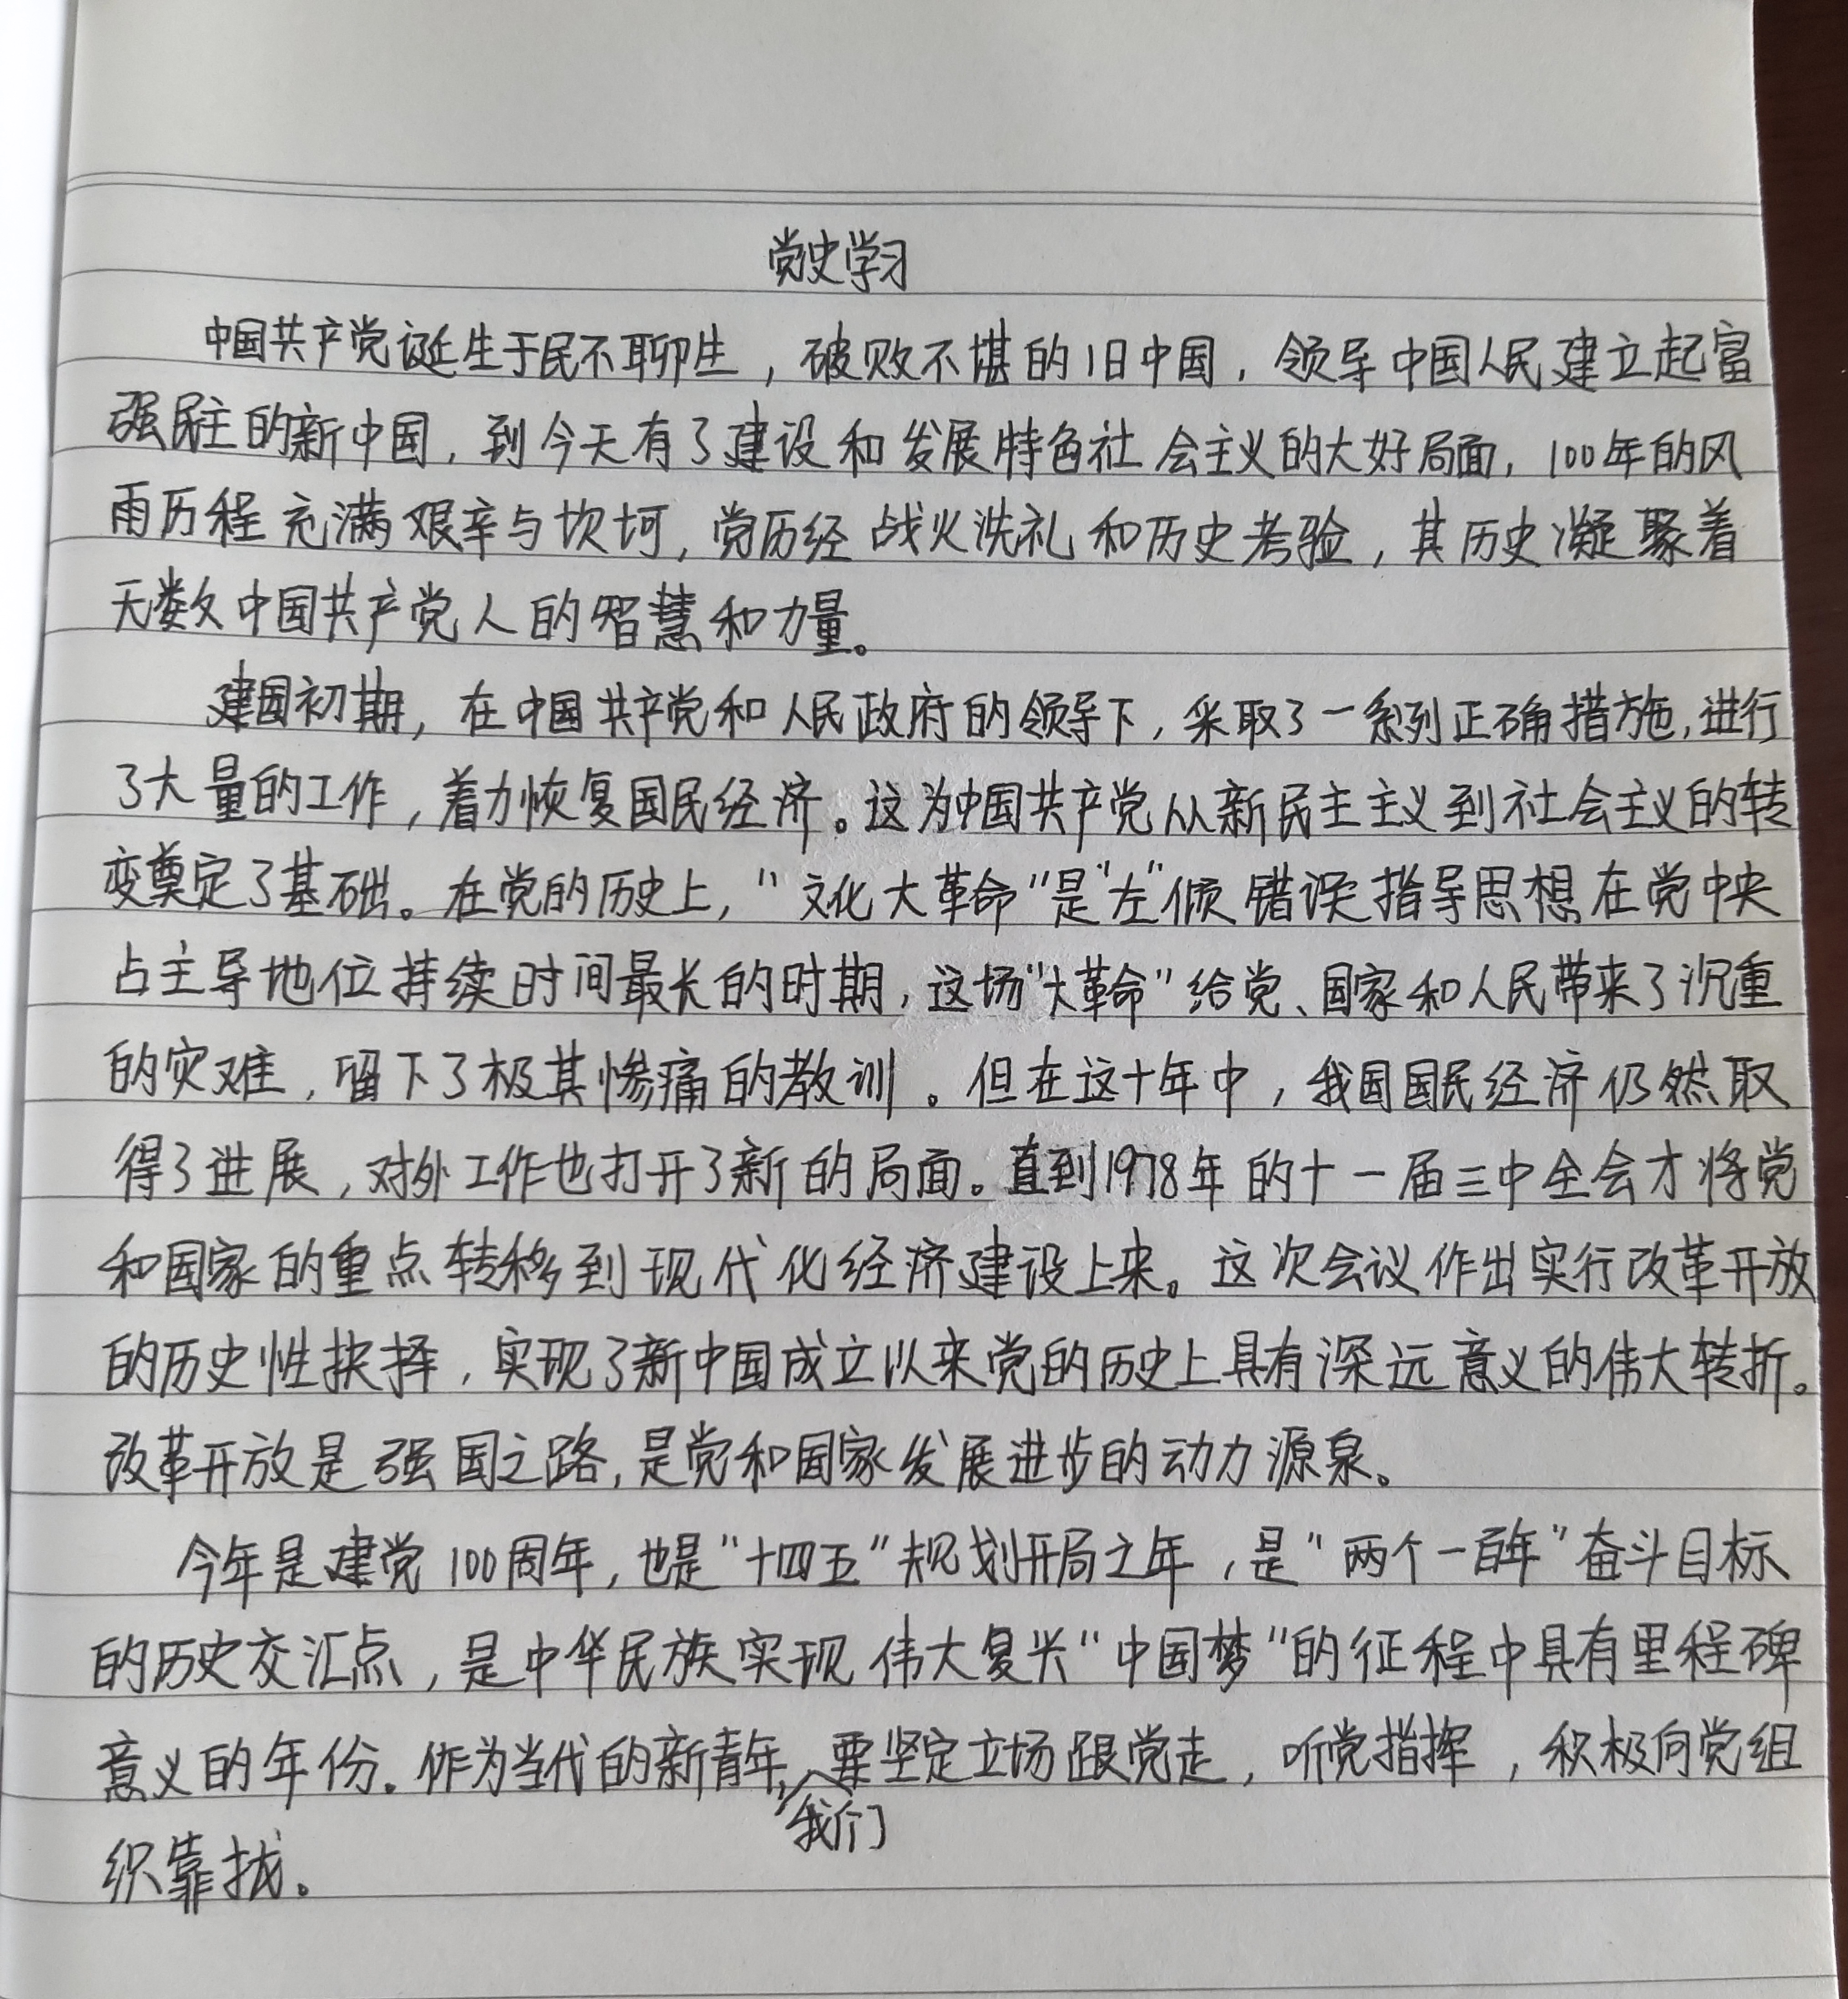 党史学习
中国共产党诞生于民不聊生，破败不堪的旧中国，领导中国人民建立起富
强民主的新中国，到今天有了建设和发展特色社会主义的大好局面，100年的风
雨历程充满艰辛与坎坷，党历经战火洗礼和历史考验，其历史凝聚着
无数中国共产党人的智慧和力量。
建国初期，在中国共产党和人民政府的领导下，采取了一系列正确措施，进行
了大量的工作，着力恢复国民经济。这为中国共产党从新民主主义到社会主义的转
变奠定了基础。在党的历史上，“文化大革命”是“左”倾错误指导思想在党中央
占主导地位持续时间最长的时期，这场“大革命”给党、国家和人民带来了沉重
的灾难，留下了极其惨痛的教训。但在这十年中，我国国民经济仍然取
得了进展，对外工作也打开了新的局面。直到1978年的十一届三中全会才将党
和国家的重点转移到现代化经济建设上来。这次会议作出实行改革开放
的历史性抉择，实现了新中国成立以来党的历史上具有深远意义的伟大转折。
改革开放是强国之路，是党和国家发展进步的动力源泉。
今年是建党100周年，也是“十四五”规划开局之年，是“两个一百年”奋斗目标
的历史交汇点，是中华民族实现伟大复兴“中国梦”的征程中具有里程碑
意义的年份。作为当代的新青年，我们要坚定立场跟党走，听党指挥，积极向党组
织靠拢。